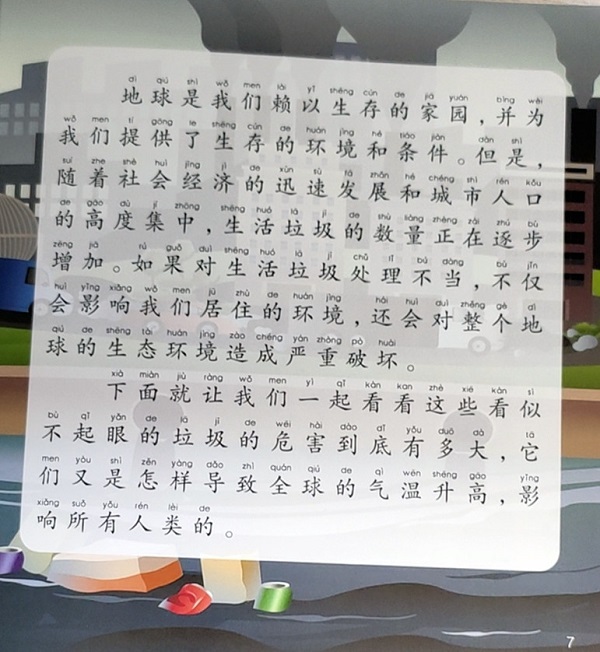 dì qiú shì wǒ men lài yǐ shēng cún de jiā yuán bìng wèi
地球是我们赖以生存的家园,并为
wǒ men tí gōng le shēng cún de huán jìng hé tiáo jiàn dàn shì
我们提供了生存的环境和条件。但是,
suí zhe shè huì jīng jì de xùn sù fā zhǎn hé chéng shì rén kǒu
随着社会经济的迅速发展和城市人口
de gāo dù jí zhōng shēng huó lā jī de shù liàng zhèng zài zhú bù
的高度集中,生活垃圾的数量正在逐步
zēng jiā rú guǒ duì shēng huó lā jī chǔ lǐ bú dàng bù jǐn
增加。如果对生活垃圾处理不当,不仅
huì yǐng xiǎng wǒ men jū zhù de huán jìng hái huì duì zhěng gè dì
会影响我们居住的环境,还会对整个地
qiú de shēng tài huán jìng zào chéng yán zhòng pò huài
球的生态环境造成严重破坏。
xià miàn jiù ràng wǒ men yì qǐ kàn kan zhè xiē kàn sì
下面就让我们一起看看这些看似
bù qǐ yǎn de lā jī de wēi hài dào dǐ yǒu duō dà tā
不起眼的垃圾的危害到底有多大,它
men yòu shì zěn yàng dǎo zhì quán qiú de qì wēn shēng gāo yǐng
们又是怎样导致全球的气温升高,影
xiǎng suǒ yǒu rén lèi de
响所有人类的。
7